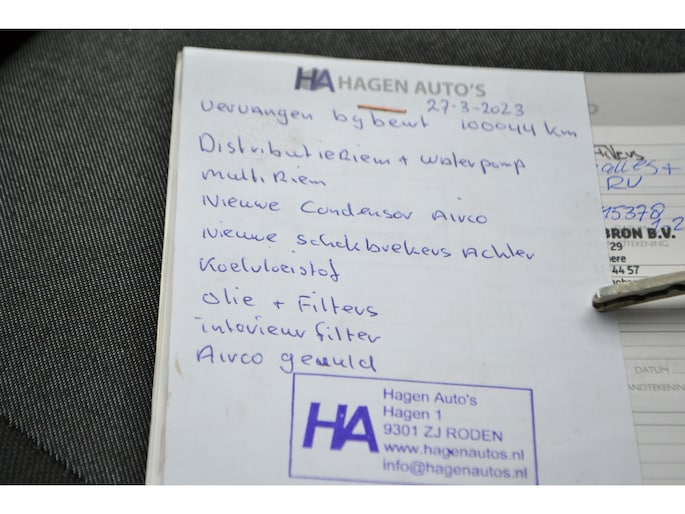 HA HAGEN AUTO'S
27-3-2023
vervangen by beurt 100044 km
DistributieRiem + waterpomp
multi Riem
Nieuwe Condensor Airco
Nieuwe schokbrekers Achter
Koelvloeistof
olie + Filters
interieur filter
Airco gevuld
HA
Hagen Auto's
Hagen 1
9301 ZJ RODEN
www.hagenautos.nl
info@hagenautos.nl
RU
15378
BRON B.V.
29
TEKENING
ere
44 57
DATUM
NDTEKENING